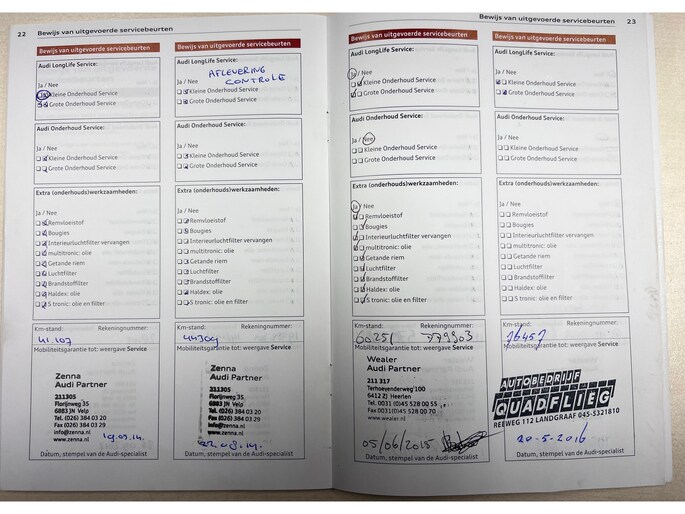 22 Bewijs van uitgevoerde servicebeurten
Bewijs van uitgevoerde servicebeurten
Audi LongLife Service:
Ja / Nee
Kleine Onderhoud Service
Grote Onderhoud Service
Audi Onderhoud Service
Ja / Nee
Kleine Onderhoud Service
Grote Onderhoud Service
Extra (onderhouds)werkzaamheden:
Ja / Nee
Remvloeistof
Bougies
Interieurluchtfilter vervangen
multitronic: olie
Getande riem
Luchtfilter
Brandstoffilter
Haldex: olie
S tronic: olie en filter
Km-stand: Rekeningnummer:
41.107
Mobiliteitsgarantie tot: weergave Service
Zenna
Audi Partner
211305
Florijnweg 35
6883 JN Velp
Tel. (026) 384 03 20
Fax (026) 384 03 29
info@zenna.nl
www.zenna.nl
19.03.14.
Datum, stempel van de Audi-specialist
Bewijs van uitgevoerde servicebeurten
Audi LongLife Service:
AFLEVERING
Ja / Nee CONTROLE
Kleine Onderhoud Service
Grote Onderhoud Service
Audi Onderhoud Service
Ja / Nee
Kleine Onderhoud Service
Grote Onderhoud Service
Extra (onderhouds)werkzaamheden:
Ja / Nee
Remvloeistof
Bougies
Interieurluchtfilter vervangen
multitronic: olie
Getande riem
Luchtfilter
Brandstoffilter
Haldex: olie
S tronic: olie en filter
Km-stand: Rekeningnummer:
44309
Mobiliteitsgarantie tot: weergave Service
Zenna
Audi Partner
211305
Florijnweg 35
6883 JN Velp
Tel. (026) 384 03 20
Fax (026) 384 03 29
info@zenna.nl
www.zenna.nl
Datum, stempel van de Audi-specialist
Bewijs van uitgevoerde servicebeurten 23
Bewijs van uitgevoerde servicebeurten
Audi LongLife Service:
Ja / Nee
Kleine Onderhoud Service
Grote Onderhoud Service
Audi Onderhoud Service:
Ja / Nee
Kleine Onderhoud Service
Grote Onderhoud Service
Extra (onderhouds)werkzaamheden:
Ja / Nee
Remvloeistof
Bougies
Interieurluchtfilter vervangen
multitronic: olie
Getande riem
Luchtfilter
Brandstoffilter
Haldex: olie
S tronic: olie en filter
Km-stand: Rekeningnummer:
60251 779903
Mobiliteitsgarantie tot: weergave Service
Wealer
Audi Partner
211 317
Terhoevenderweg 100
6412 ZJ Heerlen
Tel. 0031 (0)45 528 00 55
Fax 0031(0)45 528 00 70
www-wealer.nl
05/06/2015
Datum, stempel van de Audi-specialist
Bewijs van uitgevoerde servicebeurten
Audi LongLife Service:
Ja / Nee
Kleine Onderhoud Service
Grote Onderhoud Service
Audi Onderhoud Service:
Ja / Nee
Kleine Onderhoud Service
Grote Onderhoud Service
Extra (onderhouds)werkzaamheden:
Ja / Nee
Remvloeistof
Bougies
Interieurluchtfilter vervangen
multitronic: olie
Getande riem
Luchtfilter
Brandstoffilter
Haldex: olie
S tronic: olie en filter
Km-stand: Rekeningnummer:
76457
Mobiliteitsgarantie tot: weergave Service
AUTOBEDRIJF
QUADFLIEG
REEWEG 112 LANDGRAAF 045-5321810
20-5-2016
Datum, stempel van de Audi-specialist